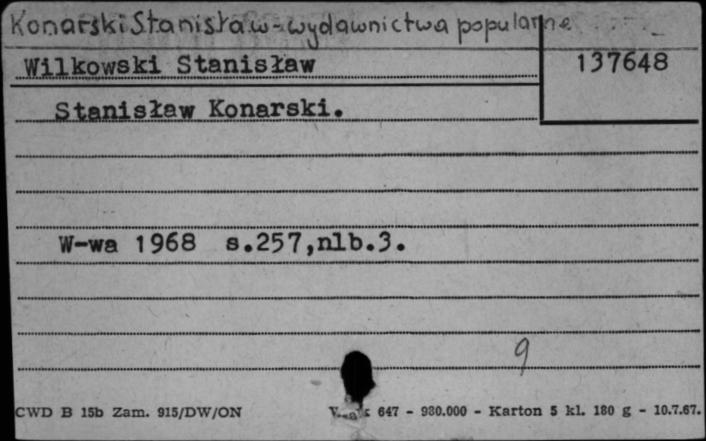 Konarski Stanisław - wydawnictwa popularne
Wilkowski Stanisław 137648
Stanisław Konarski.
W-wa 1968 s.257,nlb.3.
9
CWD B 15b Zam. 915/DW/ON 647 - 980.000 - Karton 5 kl. 180 g - 10.7.67.